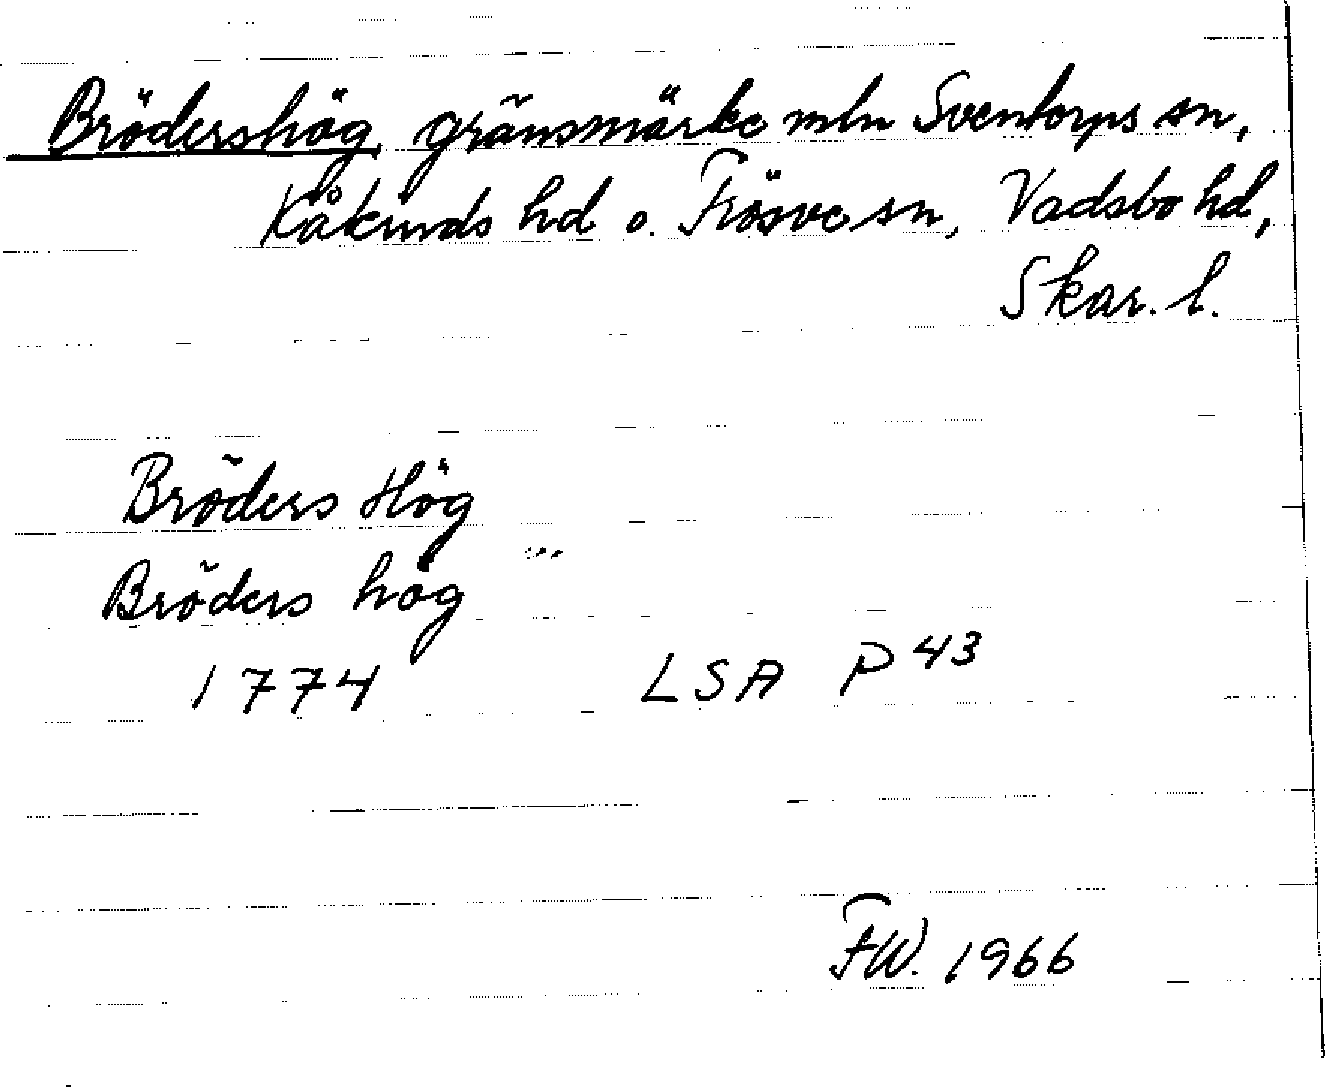 Brödershög, gränsmärke mln Sventorps sn,
Kåkinds hd o. Frösve sn, Vadsbo hd,
Skar. l.
Bröders Hög
Bröders hög
1774 LSA P 43
FW. 1966